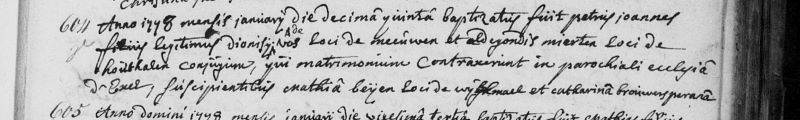 604 Anno 1778 mensis januarÿ die decimâ quintâ baptizatus fuit petrus joannes
filius legitimus dionisÿ de vos loci de meeuwen et aldegondis mierten loci de
houthalen conjugum, qui matrimonium contraxerunt in parochiali ecclesiâ
d'Exel, suscipientibus mathia beÿen loci de wÿchmael et catharinâ brouwers
605 Anno domini 1778 mensis januarÿ die vicesimâ tertiâ baptizatus fuit mathias